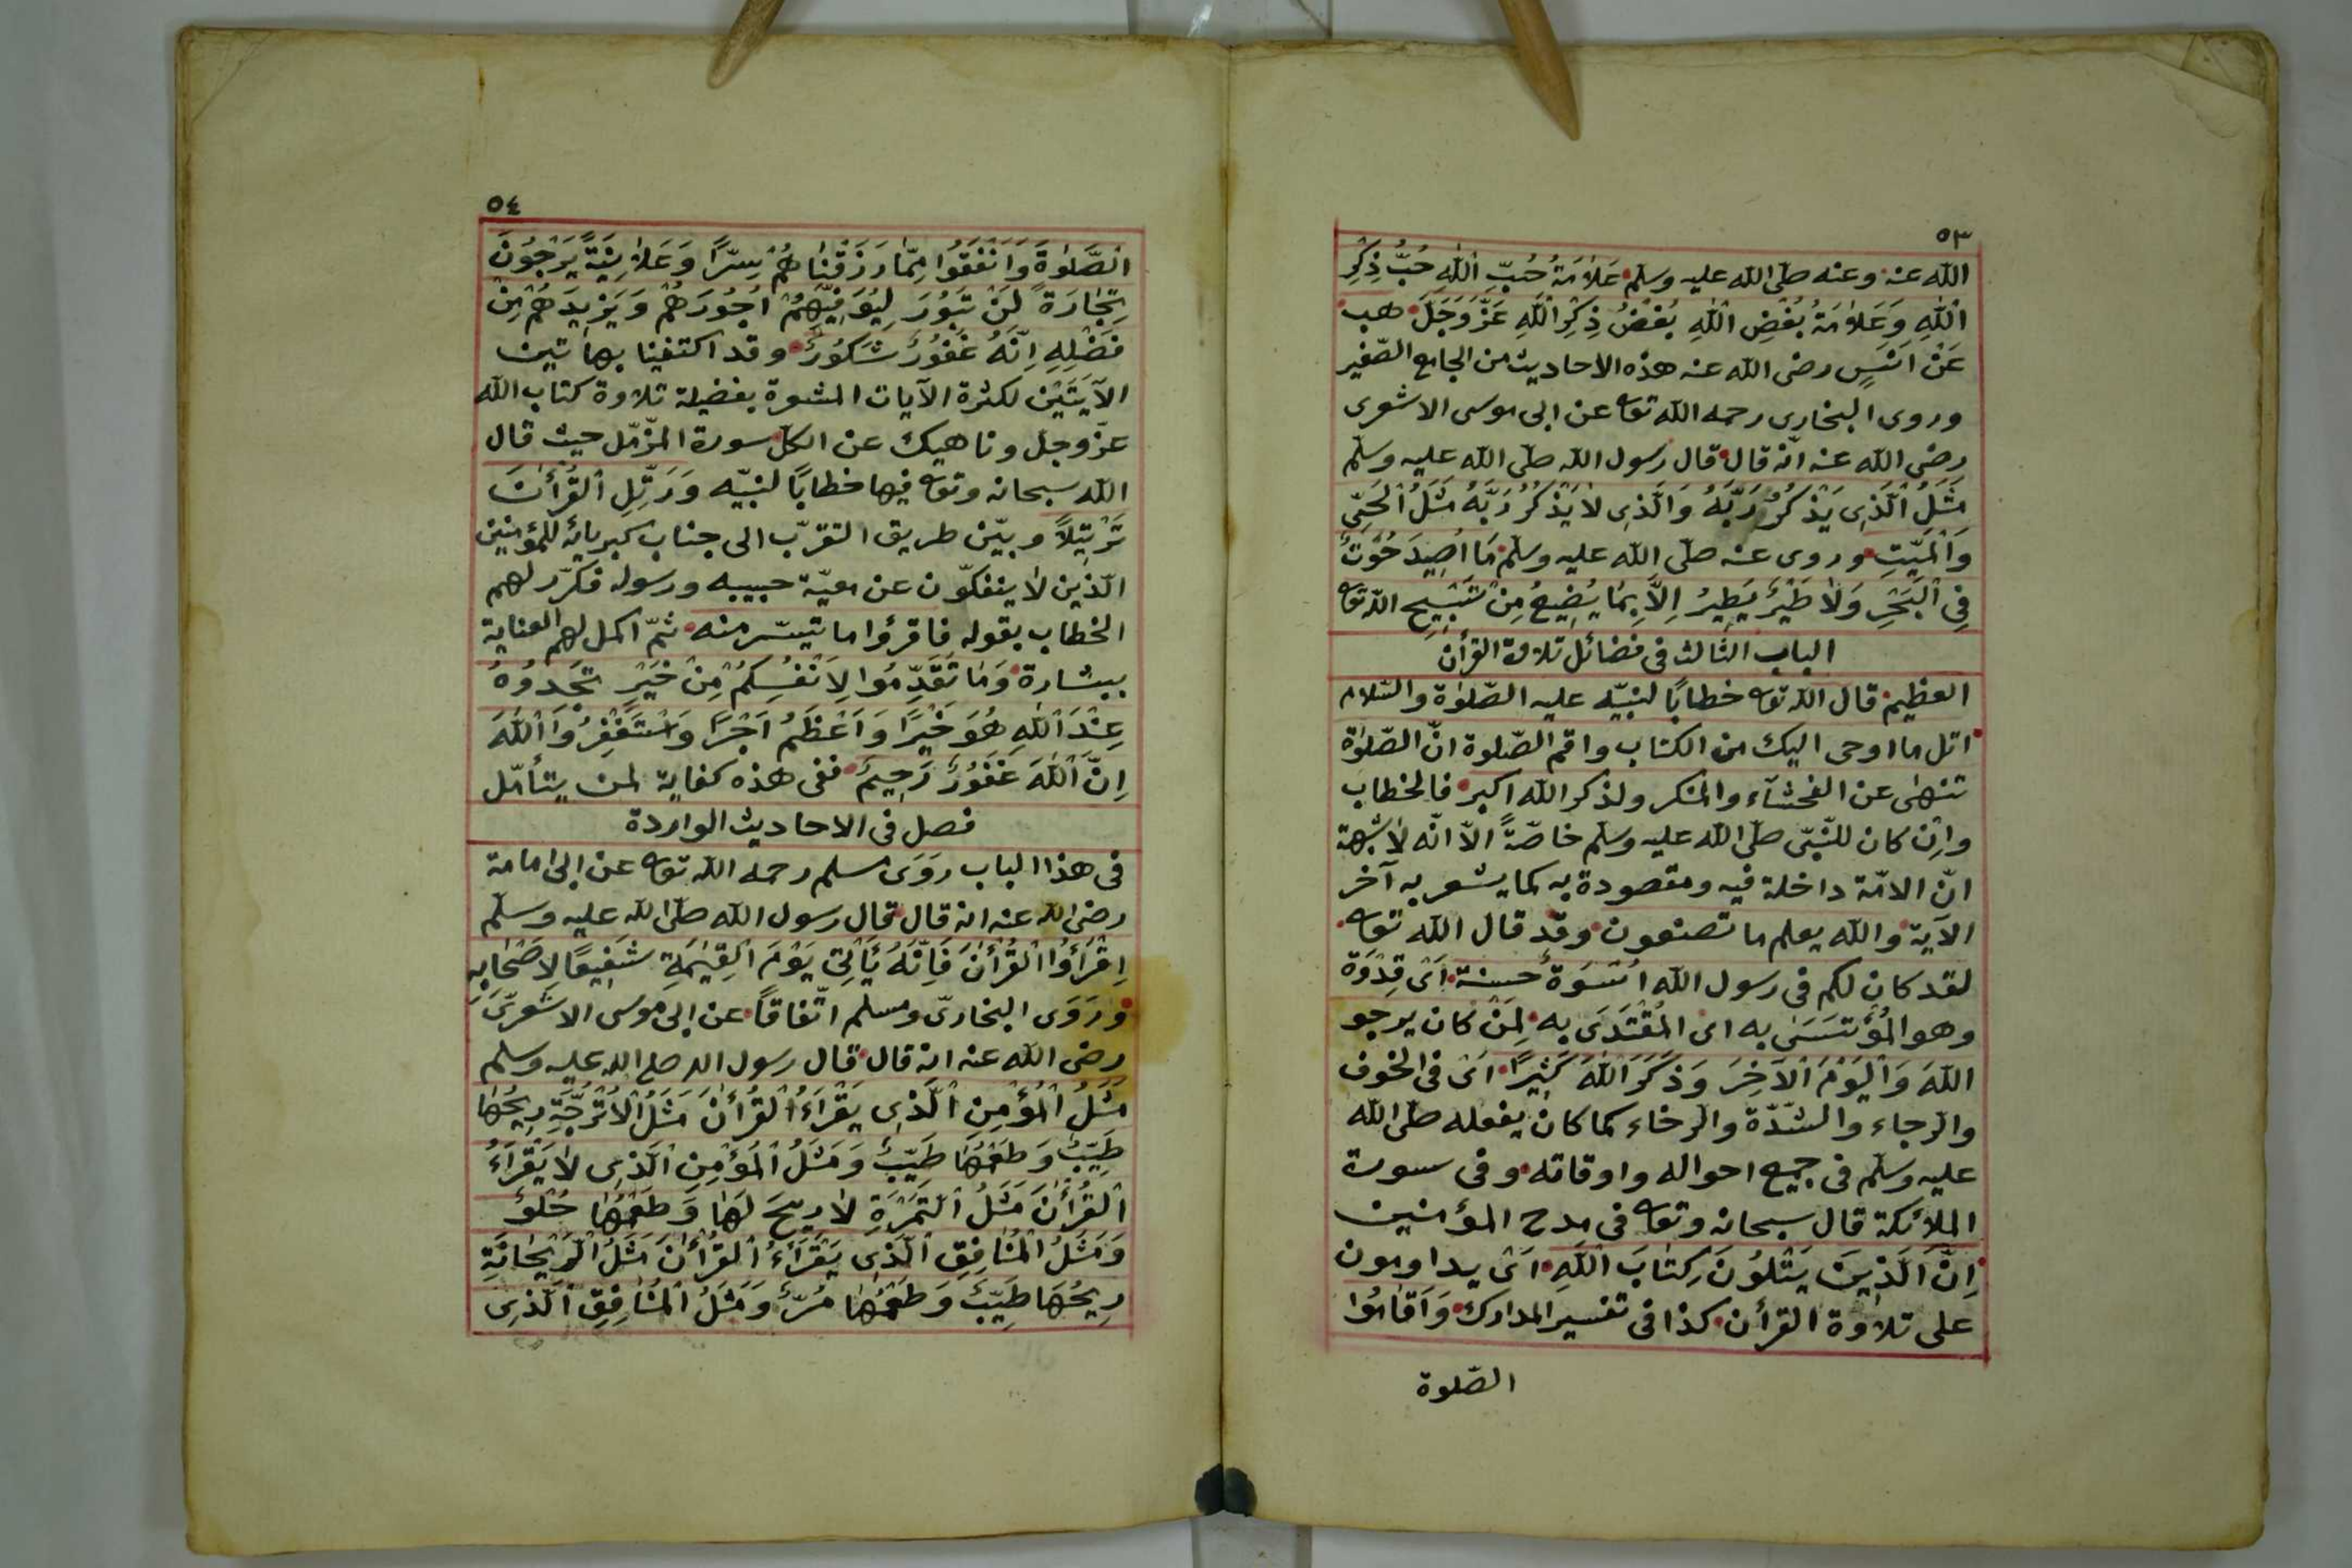 ٥٣
الله عنه وعنه صلّى الله عليه وسلم عَلَامَةُ حُبِّ اللهِ حُبُّ ذِكْرِ
اللهِ وَعَلَامَةُ بُغْضِ اللهِ بُغْضُ ذِكْرِ اللهِ عَزَّ وَجَلَّ هب
عَنْ اَنَسٍ رضى الله عنه هذه الاحاديث من الجامع الصّغير
وروى البخارى رحمه الله تعه عن ابى موسى الاشعرى
رضى الله عنه انّه قال قال رسول الله صلّى الله عليه وسلّم
مَثَلُ الَّذِى يَذْكُرُ رَبَّهُ وَالَّذِى لَا يَذْكُرُ رَبَّهُ مَثَلُ الْحَىِّ
وَالْمَيِّتِ وروى عنه صلّى الله عليه وسلّم مَا اُصِيدَ حُوتٌ
فِى الْبَحْرِ وَلَا طَيْرٌ يَطِيرُ اِلَّا بِمَا يُضِيعُ مِنْ تَسْبِيحِ اللّٰه تعه
الباب الثّالث فى فضائل تلاوة القرأن
العظيم قال الله تعه خطابًا لنبيّه عليه الصّلوٰة والسّلام
اتل ما اوحى اليك من الكتاب واقم الصّلوة انّ الصّلوٰة
تنهٰى عن الفحشآء والمنكر ولذكر الله اكبر فالخطاب
وإن كان للنّبىّ صلّى الله عليه وسلّم خاصّةً الّا انّه لا شبهة
انّ الامّة داخلة فيه ومقصودة به كما يشعر به آخر
الآية والله يعلم ما تصنعون وقد قال الله تعه
لقد كان لكم فى رسول الله اُسْوَةٌ حسنة اَىْ قِدْوَة
وهو المُؤْتَسَىٰ به اى المُقْتَدَى به لِمَنْ كان يرجو
اللهَ وَالْيَوْمَ الْآخِرَ وَذَكَرَ اللهَ كَثِيرًا اَىْ فى الخوف
والرجاء والشّدّة والرخاء كما كان يفعله صلّى الله
عليه وسلّم فى جميع احواله واوقاته وفى سورة
الملائكة قال سبحانه وتعه فى مدح المؤمنين
اِنَّ الَّذِينَ يَتْلُونَ كِتَابَ اللهِ اَىْ يداومون
على تلاوة القرأن كذا فى تفسير المدارك وَاَقَامُوا
الصّلوة
٥٤
الصَّلٰوةَ وَاَنْفَقُوا مِمَّا رَزَقْنَاهُمْ سِرًّا وَعَلَانِيَةً يَرْجُونَ
تِجَارَةً لَنْ تَبُورَ لِيُوَفِّيَهُمْ اُجُورَهُمْ وَيَزِيدَهُمْ مِنْ
فَضْلِهِ اِنَّهُ غَفُورٌ شَكُورٌ وقد اكتفينا بهاتين
الآيَتَيْن لكثرة الآيات المشعرة بفضيلة تلاوة كتاب الله
عزّ وجلّ وناهيك عن الكلّ سورة المزّمّل حيث قال
الله سبحانه وتعه فيها خطابًا لنبيّه وَرَتِّلِ الْقُرْأٰنَ
تَرْتِيلًا وبيّن طريق التقرّب الى جناب كبريائه للمؤمنين
الّذين لا ينفكّون عن معيّة حبيبه ورسوله فكرّر لهم
الخطاب بقوله فاقرؤا ما تيسّر منه ثمّ اكمل لهم العناية
ببشارة وَمَا تُقَدِّمُوا لِاَنْفُسِكُمْ مِنْ خَيْرٍ تَجِدُوهُ
عِنْدَ اللهِ هُوَ خَيْرًا وَاَعْظَمُ اَجْرًا وَاسْتَغْفِرُوا اللهَ
اِنَّ اللهَ غَفُورٌ رَحِيمٌ ففى هذه كفاية لمن يتأمّل
فصل فى الاحاديث الواردة
فى هذا الباب رَوَى مسلم رحمه الله تعه عن ابى امامة
رضى الله عنه انه قال قال رسول الله صلّى الله عليه وسلّم
اِقْرَأُوا الْقُرْأٰنَ فَاِنَّهُ يَأْتِى يَوْمَ الْقِيٰمَةِ شَفِيعًا لِاَصْحَابِهِ
وَرَوَى البخارىّ ومسلم اتّفاقاً عن ابى موسى الاشعرىّ
رضى الله عنه انه قال قال رسول الله صلى الله عليه وسلم
مَثَلُ الْمُؤْمِنِ الَّذِى يَقْرَأُ الْقُرْأٰنَ مَثَلُ الْاُتْرُجَّةِ رِيحُهَا
طَيِّبٌ وَطَعْمُهَا طَيِّبٌ وَمَثَلُ الْمُؤْمِنِ الَّذِى لَا يَقْرَأُ
الْقُرْأٰنَ مَثَلُ التَّمْرَةِ لَا رِيحَ لَهَا وَطَعْمُهَا حُلْوٌ
وَمَثَلُ الْمُنَافِقِ الَّذِى يَقْرَأُ الْقُرْأٰنَ مَثَلُ الرَّيْحَانَةِ
رِيحُهَا طَيِّبٌ وَطَعْمُهَا مُرٌّ وَمَثَلُ الْمُنَافِقِ الَّذِى